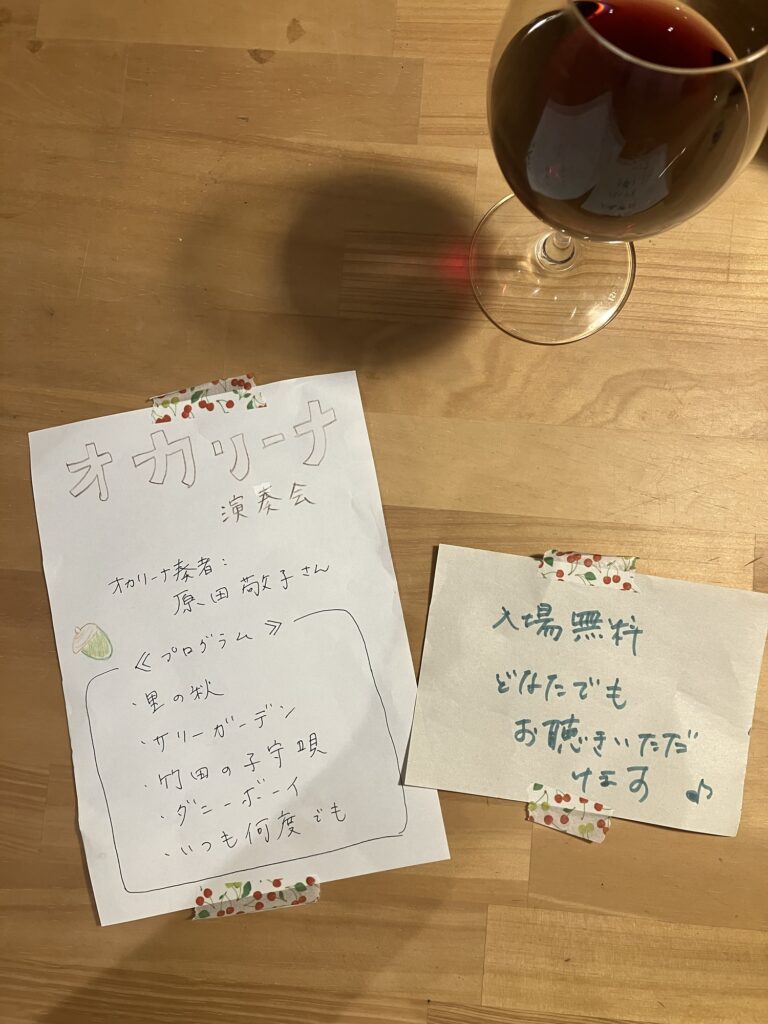 オカリーナ
演奏会
オカリーナ奏者:
原田敬子さん
≪プログラム≫
・里の秋
・サリーガーデン
・竹田の子守唄
・ダニーボーイ
・いつも何度でも
入場無料
どなたでも
お聴きいただ
けます♪